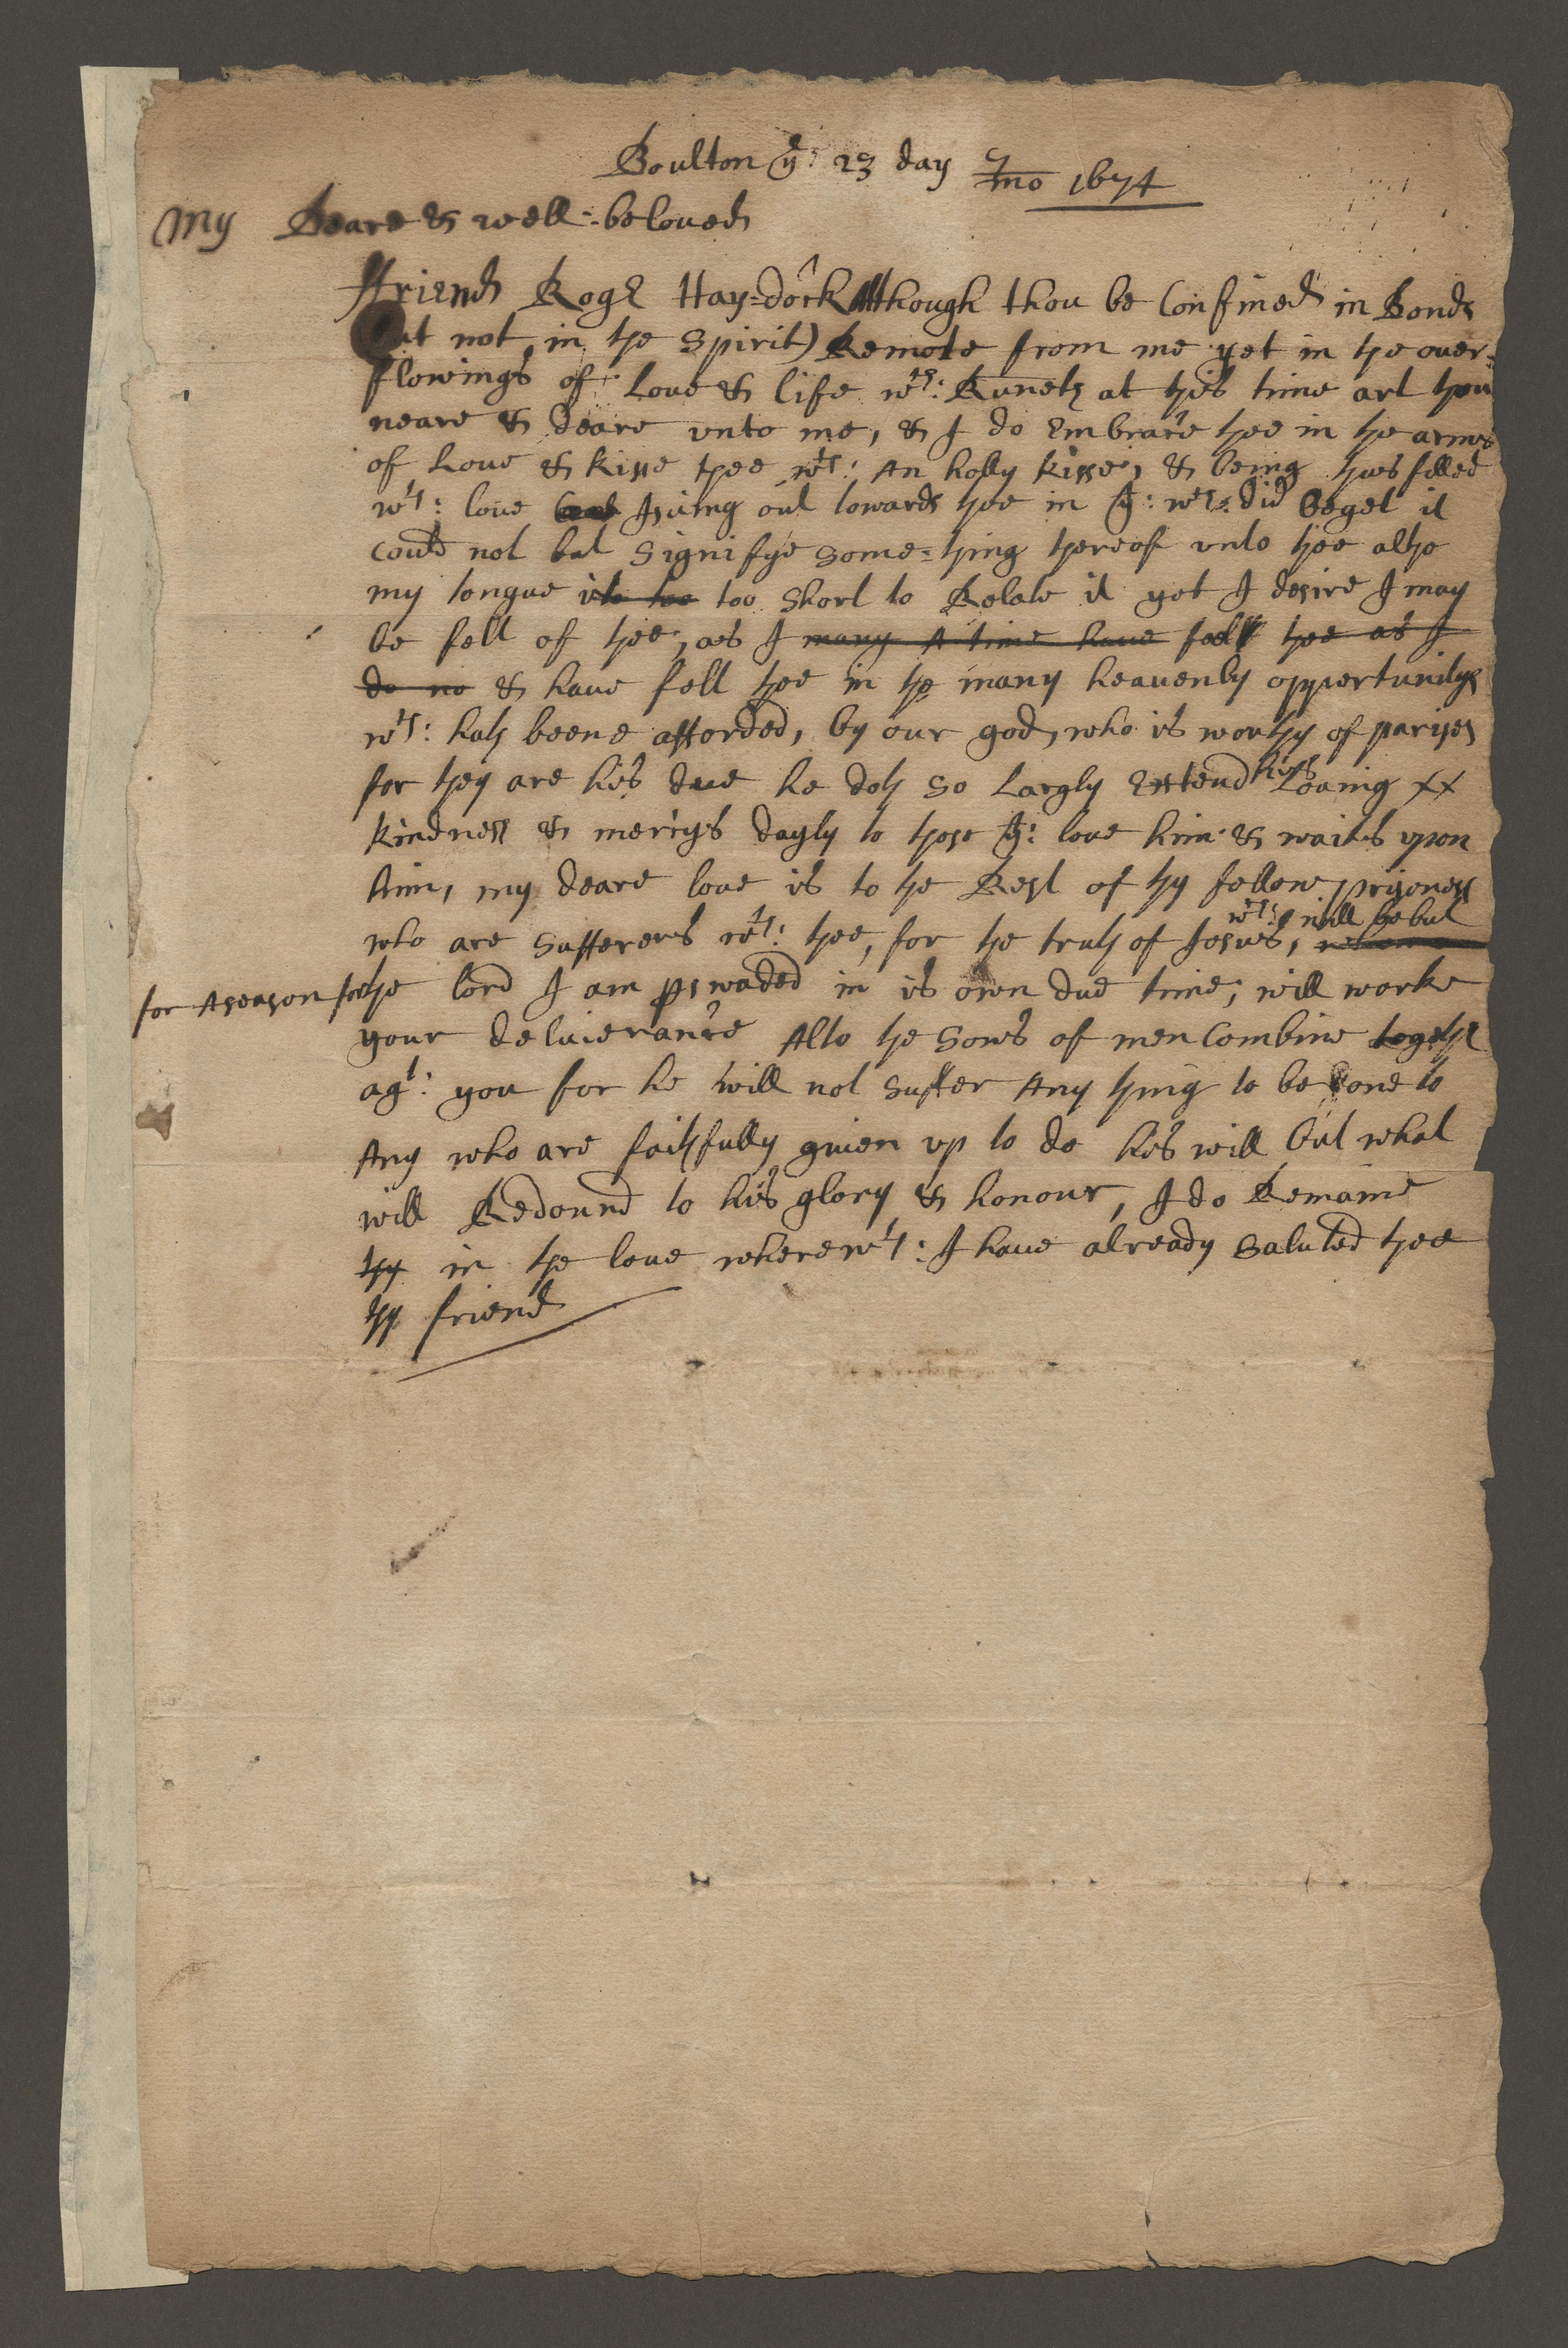 Boulton ye: 23 day 7/mo 1674
My Deare & well-beloved
ffriend Roger Hay=dock Although thou be Confined in Bonds
(but not in the Spirit) Remote from me yet in the over=
flowings of Love & life wch: Runeth at this time art thou
neare & deare unto me, & I do Embrace thee in the armes
of Love & kisse thee wth: An holly kisse, & being thus filled
wth: love Isuing out towards thee in yt: wch: did beget it
could not but Signifye some=thing thereof unto thee altho
my tongue is to too too Short to Relate it yet I desire I may
be felt of thee, as I many A time have felt thee as I
do no & have felt thee in the many heavenly oppertunitys
wch: hath beene afforded, by our god, who is worthy of parises
for they are his due he doth so Largly Extend his Loaing xx
kindness & mercys dayly to those yt: love him & waits upon
him, my deare love is to the Rest of thy fellow prisoners
who are Sufferers wth: thee, for the truth of Jesus, wch: will be but
for A season for the lord I am perswaded in is own due time, will worke
your deliverance Altho the Sons of men Combine together
agt: you for he will not Suffer Any thing to be done to
Any who are faithfully given up to do his will but what
will Redound to his glory & honour, I do Remaine
thy in the love wherewth: I have already Saluted thee
thy friend